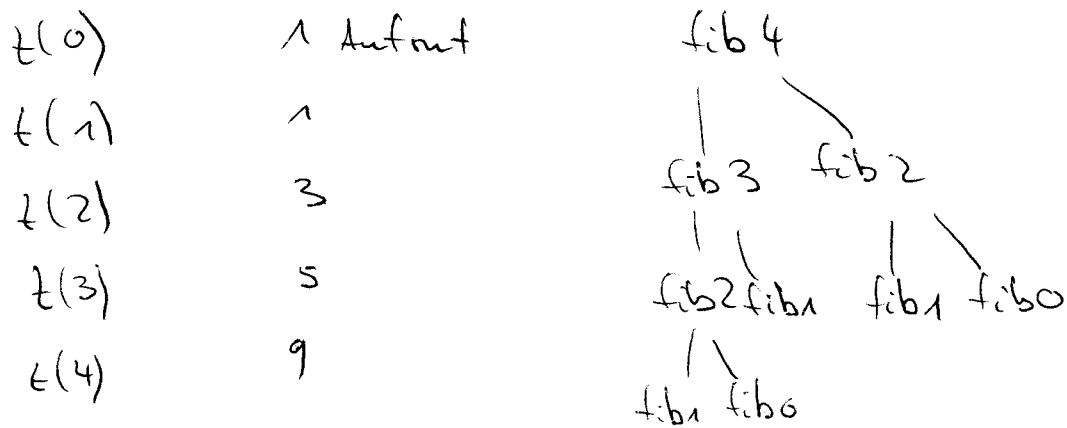 t(0) 1 Aufruf
t(1) 1
t(2) 3
t(3) 5
t(4) 9
fib 4
fib 3 fib 2
fib2 fib1 fib1 fib0
fib1 fib0